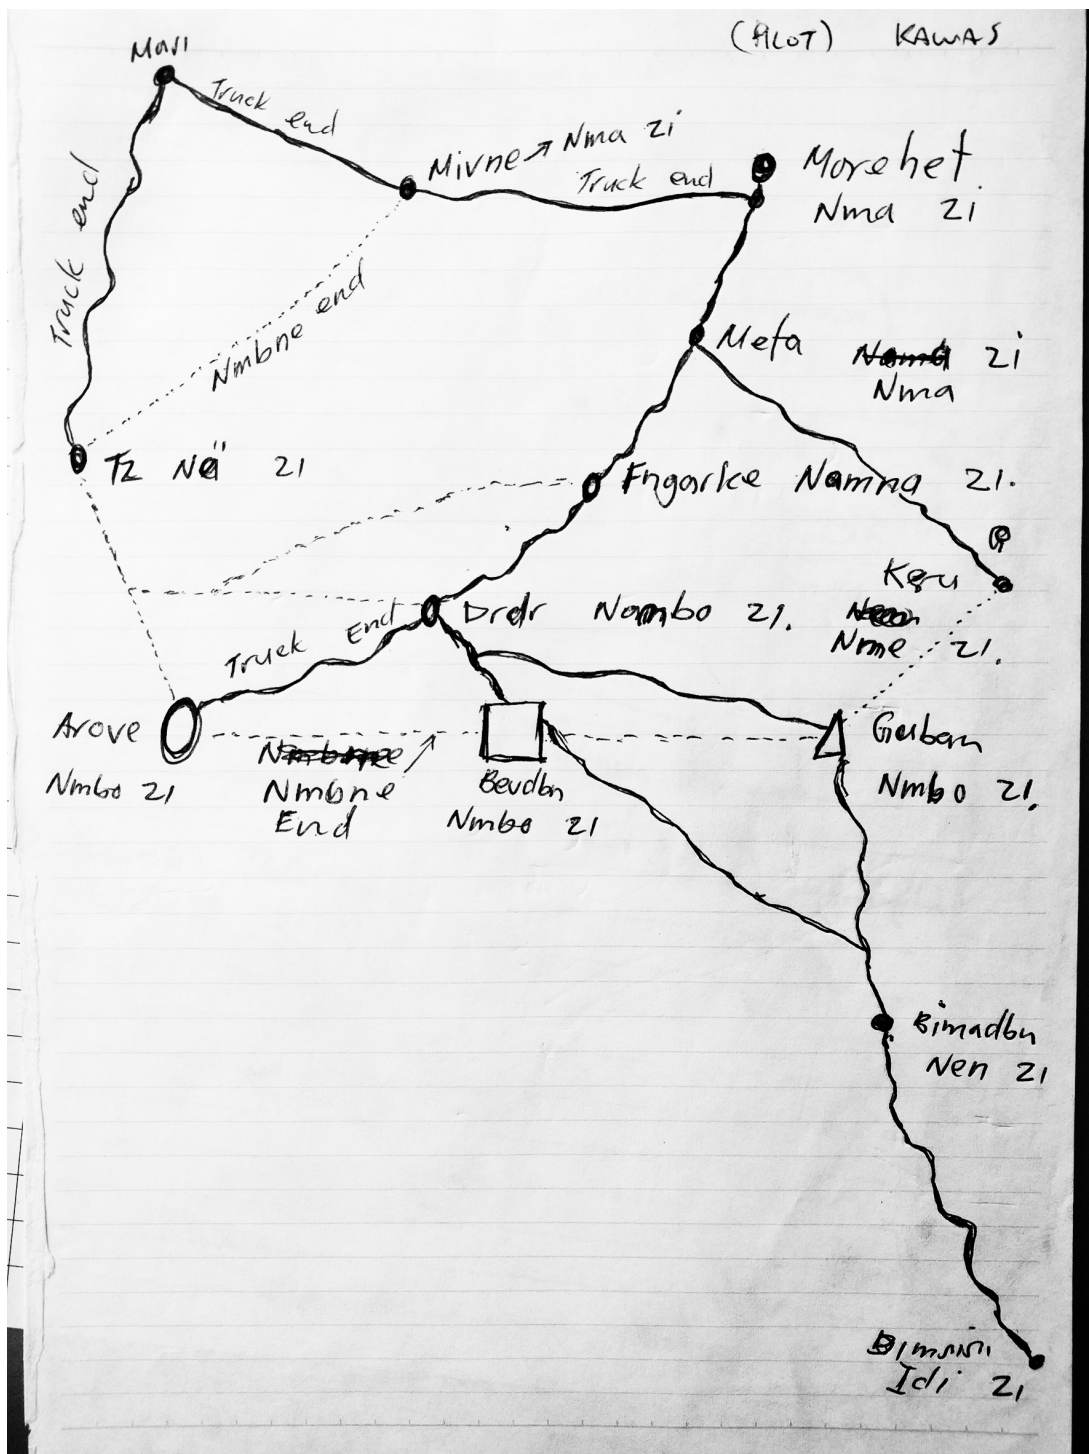 (PILOT) KAWAS
Mari
Truck end
Mivne → Nma zi
Truck end
Morehet
Nma zi
Truck end
Nmbne end
Meta
zi
Nma
Tz Nä zi
Fngarke Namna zi.
Keru
Nme zi.
Drdr Nambo zi.
Truck End
Arove
Nmbo zi
Nmbne
End
Bevdbn
Nmbo zi
Gubam
Nmbo zi.
Bimadbn
Nen zi
Idi zi